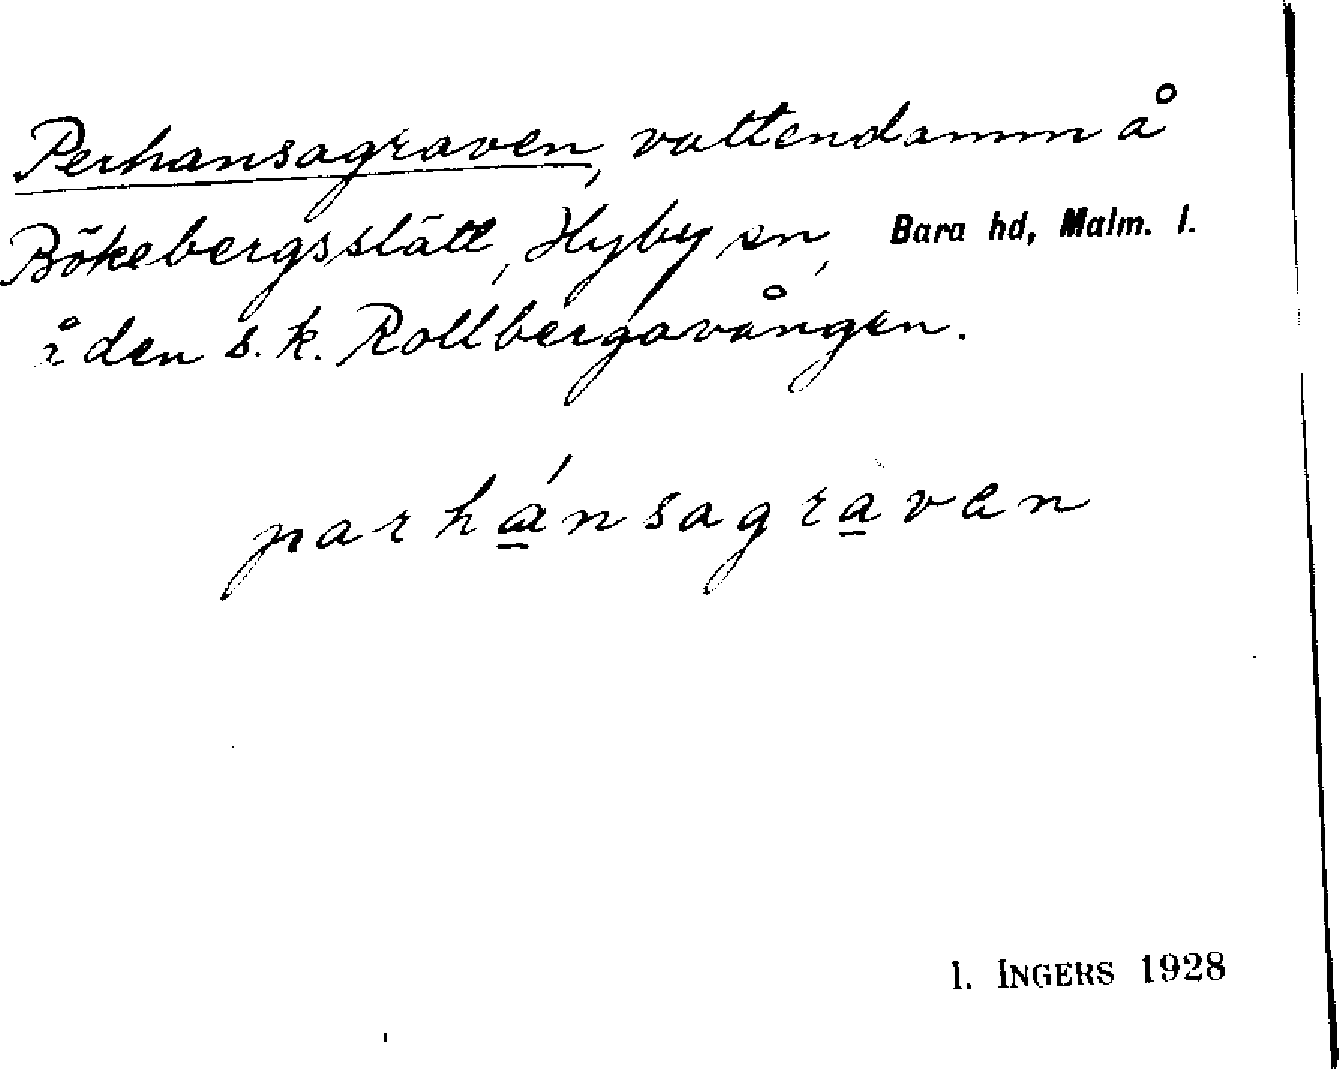 Perhansagraven, vattendamm å
Bökebergsslätt, Hyby sn, Bara hd, Malm. l.
å den s.k. Rollbergavången.
parhánsagravan
I. INGERS 1928